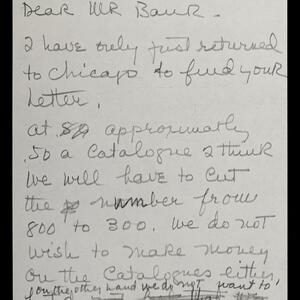 Dear Mr Bauer.
I have only just returned
to Chicago to find your
letter.
at approximatly
.50 a Catalogue I think
we will have to cut
the number from
800 to 300. We do not
wish to make money
on the Catalogues either,
on the other hand we do not want to